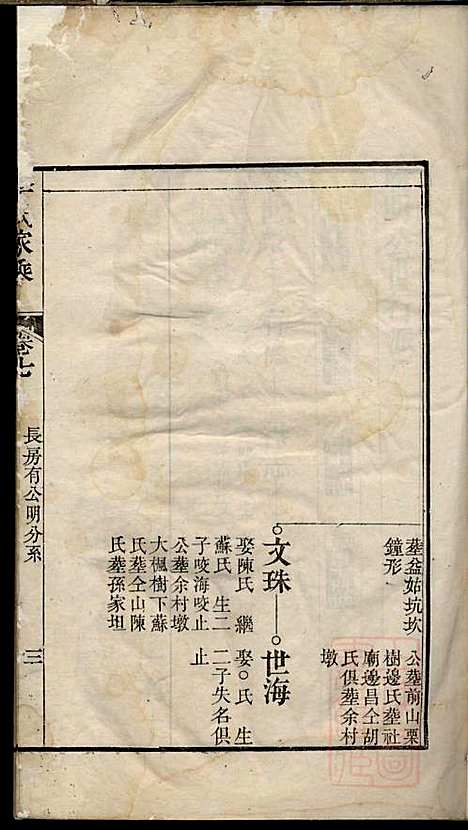 葬益姑坑坎
鐘形
公葬前山栗
樹邊氏葬社
廟邊昌仝胡
氏俱葬余村
墩
文珠
娶陳氏 繼
蘇氏 生二
子咬海咬止
公葬余村墩
大楓樹下蘇
氏葬仝山陳
氏葬孫家坦
世海
娶○氏 生
二子失名俱
止
氏家乘
卷七
長房有公明分系
三